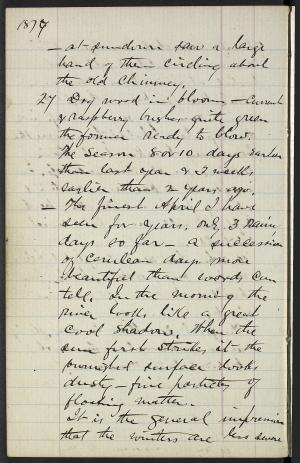 1877
— at sundown saw a large
band of them circling about
the old Chimney.
27 Dog wood in bloom — Currant
& raspberry bushes quite green
the former ready to blow.
The Season 8 or 10 days earlier
than last year & 2 weeks
earlier than 2 years ago.
— The finest April I have
seen for years, only 3 rainy
days so far — a succession
of cerulean days more
beautiful than words can
tell. In the morning the
river looks like a great
cool shadow. When the
sun first strikes it the
burnished surface looks
dusty — fine particles of
floating matter.
It is the general impression
that the winters are less severe